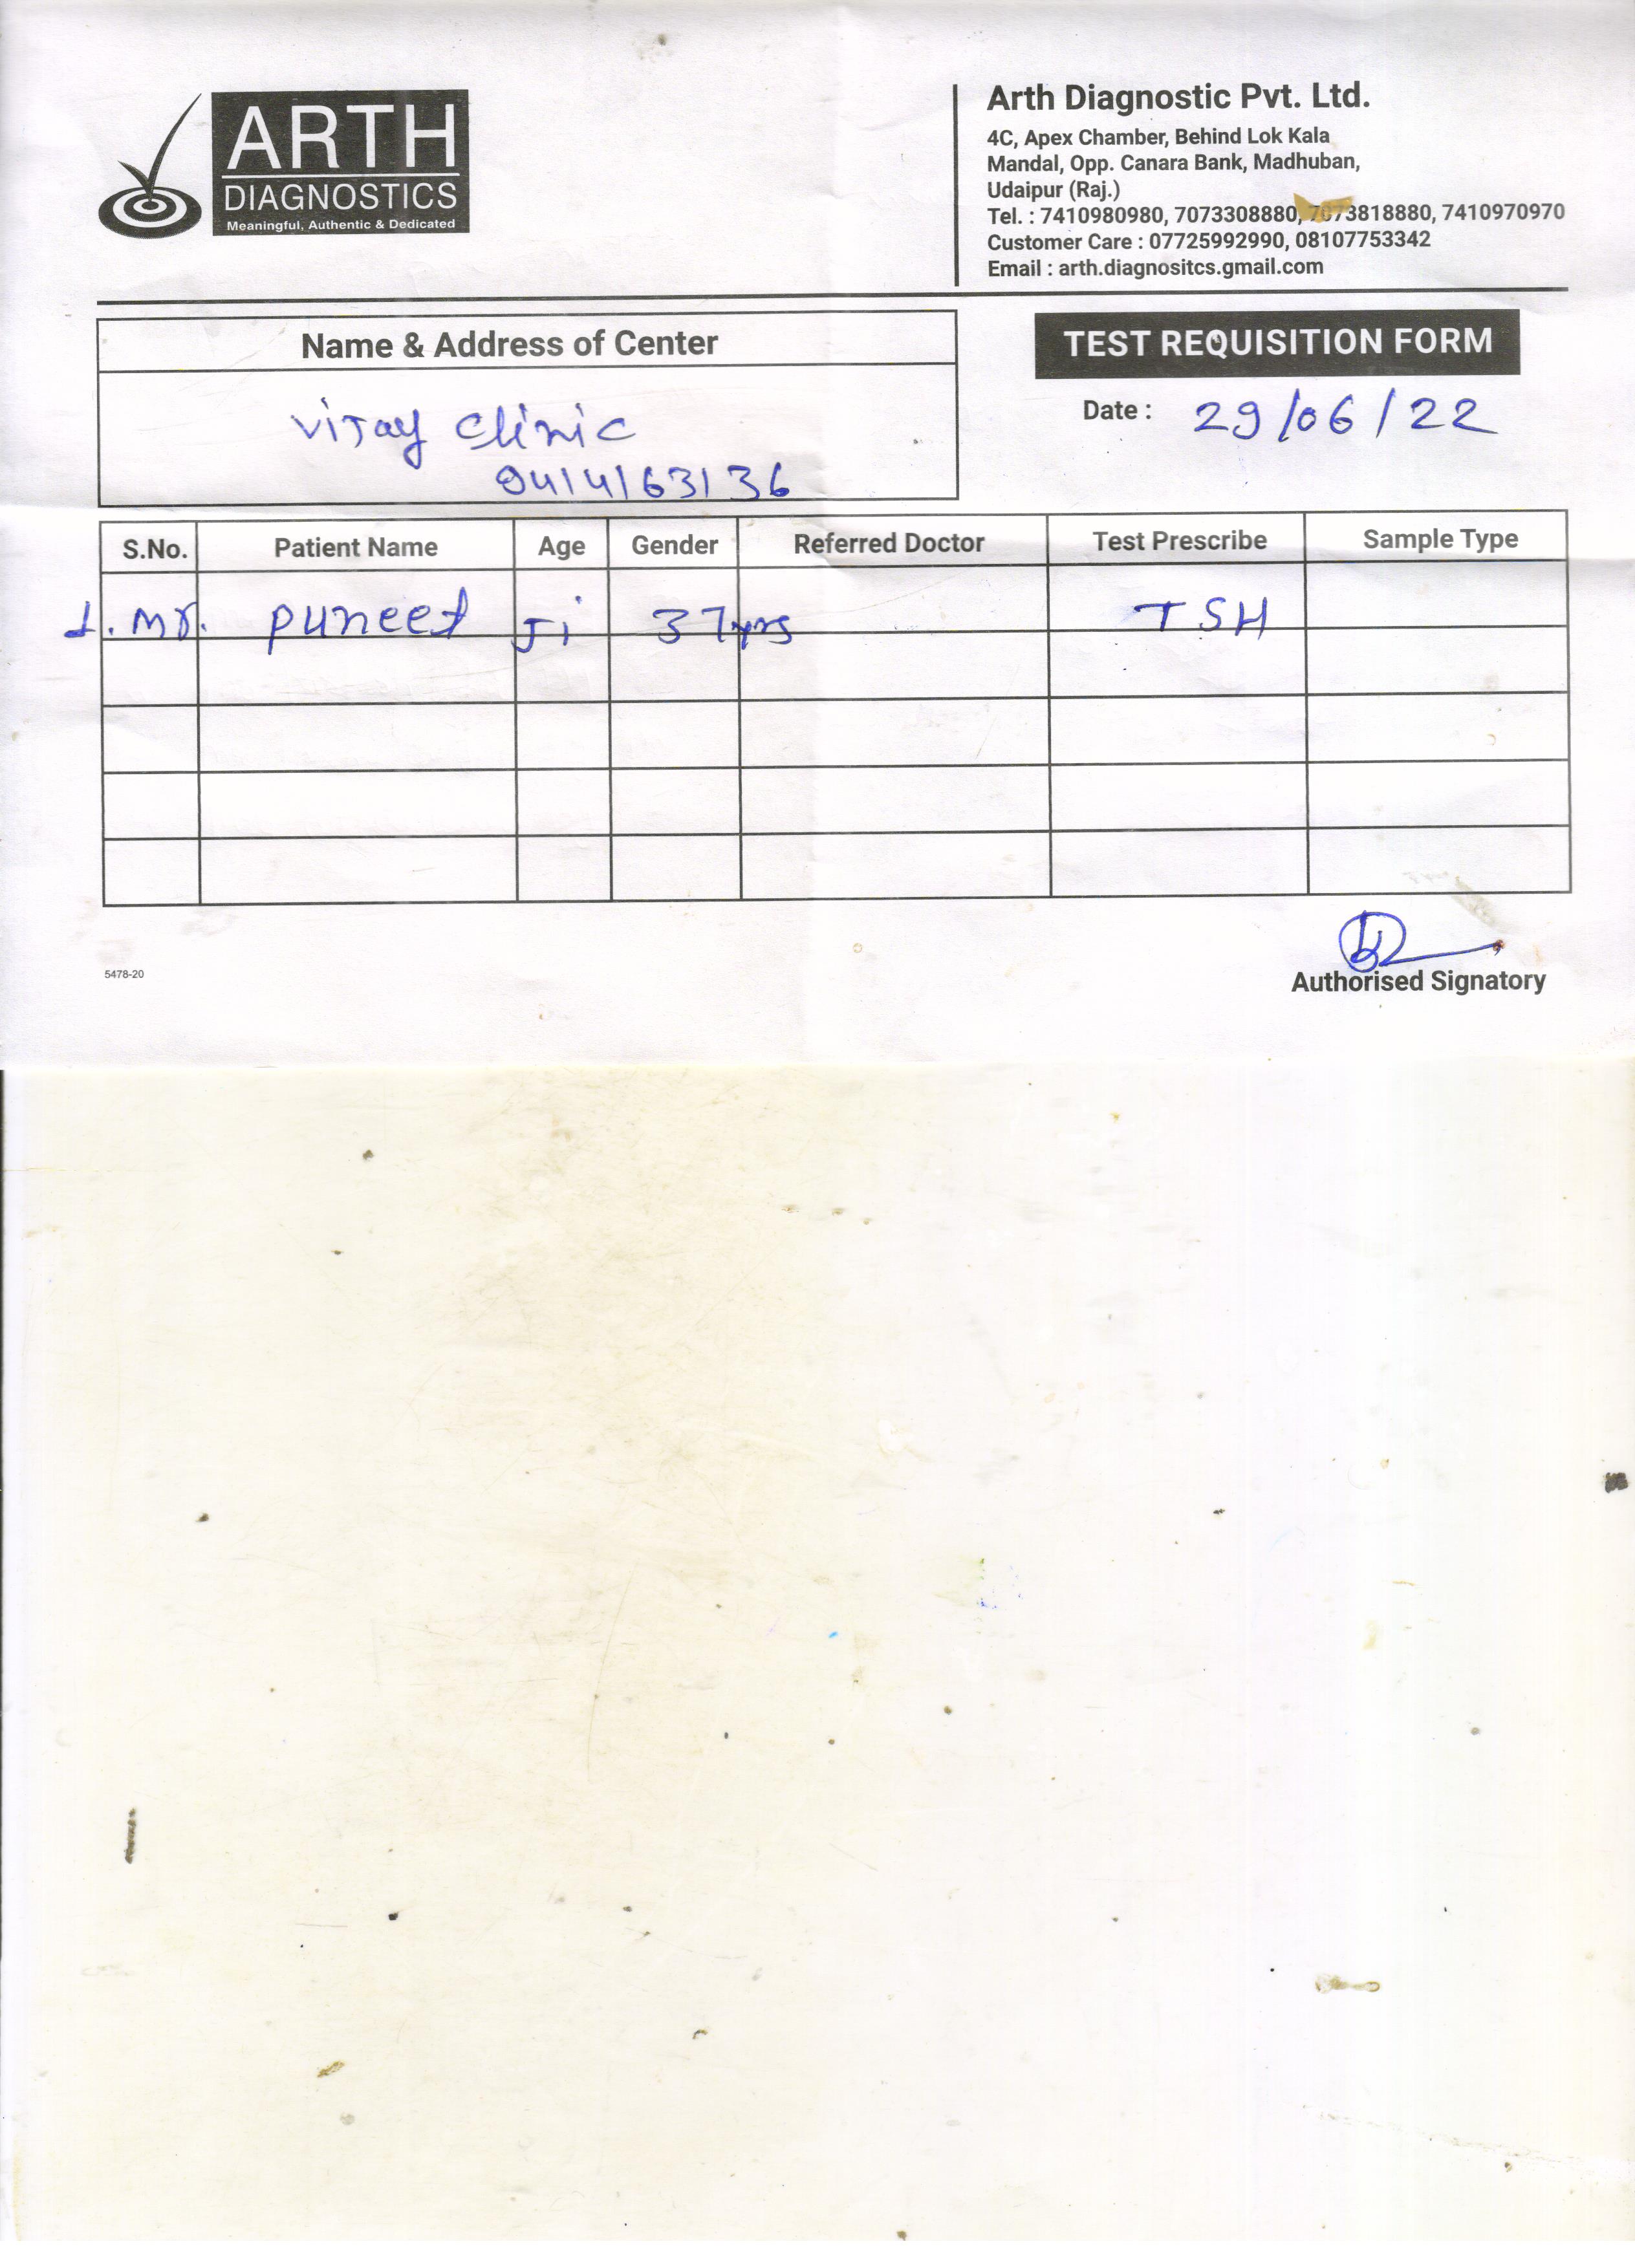 ARTH
DIAGNOSTICS
Meaningful, Authentic & Dedicated
Arth Diagnostic Pvt. Ltd.
4C, Apex Chamber, Behind Lok Kala
Mandal, Opp. Canara Bank, Madhuban,
Udaipur (Raj.)
Tel. : 7410980980, 7073308880, 7073818880, 7410970970
Customer Care : 07725992990, 08107753342
Email : arth.diagnositcs.gmail.com
Name & Address of Center
TEST REQUISITION FORM
Vijay Clinic
Date : 29/06/22
9414163136
S.No. Patient Name Age Gender Referred Doctor Test Prescribe Sample Type
1. Mr. Puneet Ji 37yrs TSH
5478-20
Authorised Signatory